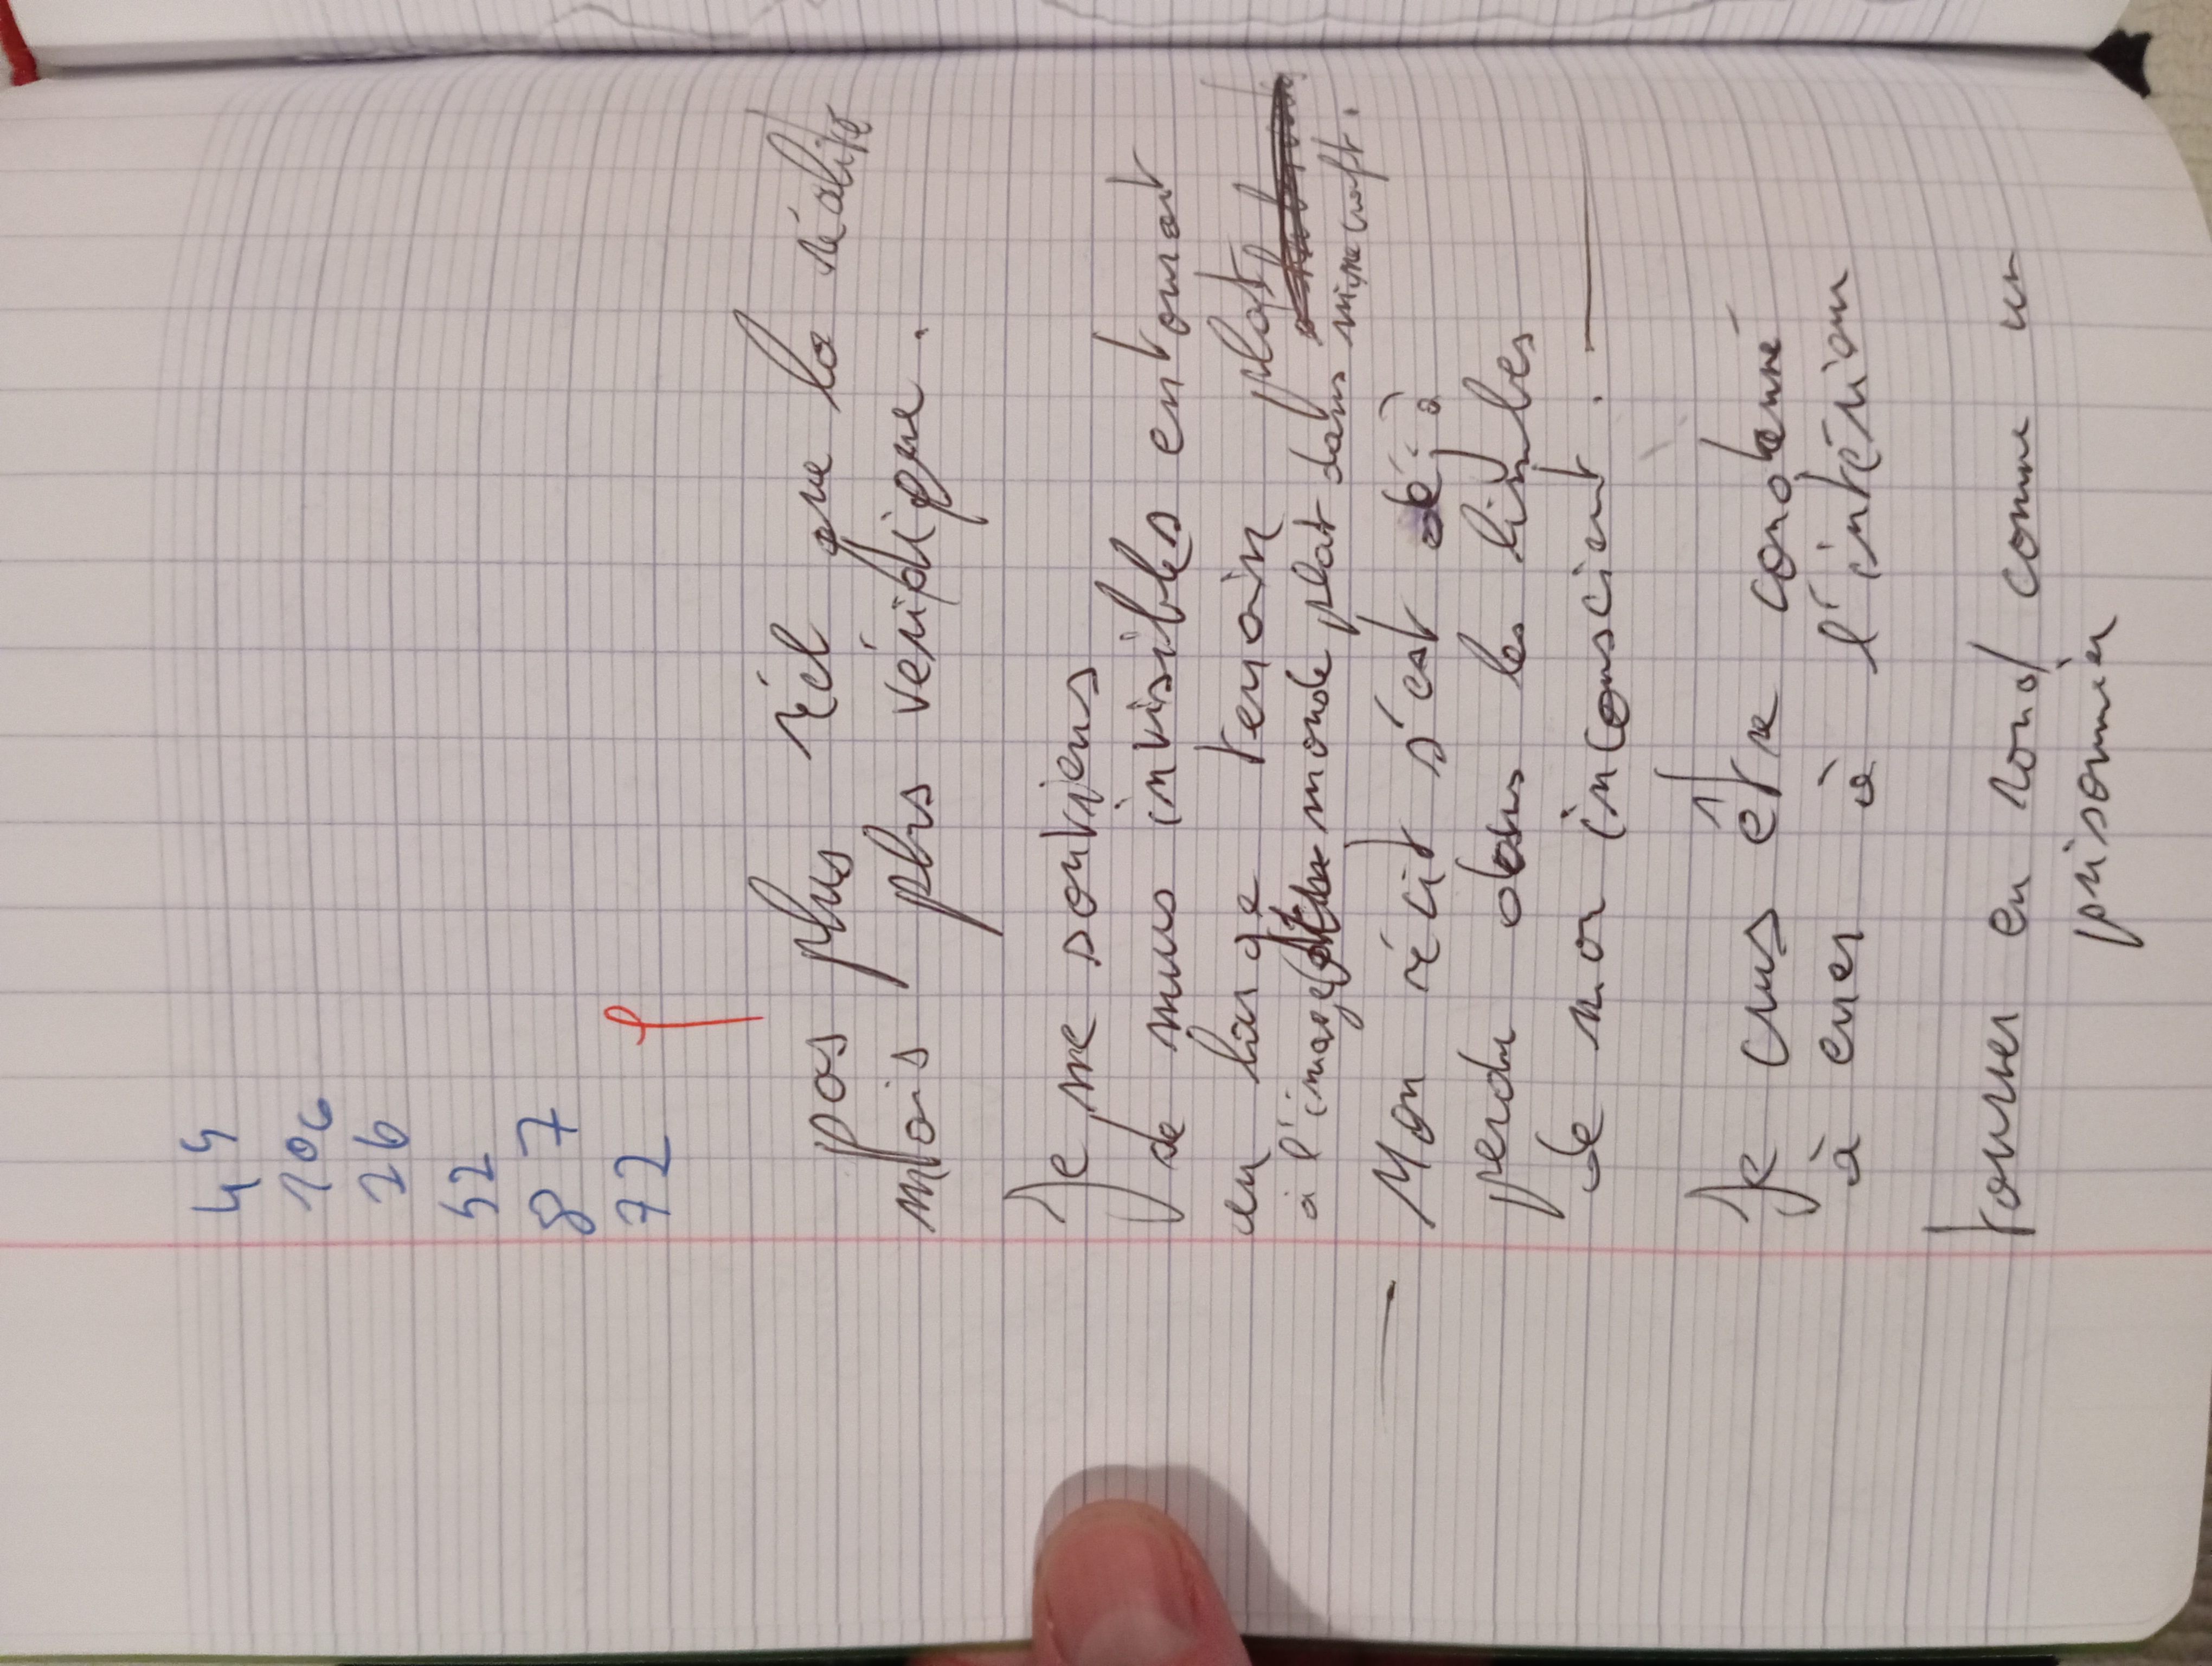 45
106
26
52
87
72
pas plus réel que la réalité
mais plus véridique.
Je me souviens
de murs invisibles entourant
un large terrain plat
à l'image d'un monde plat dans minecraft.
Mon récit s'est déjà
perdu dans les limbes
de mon inconscient.
Je crus être condamné
à errer à l'intérieur
tourner en rond comme un
prisonnier